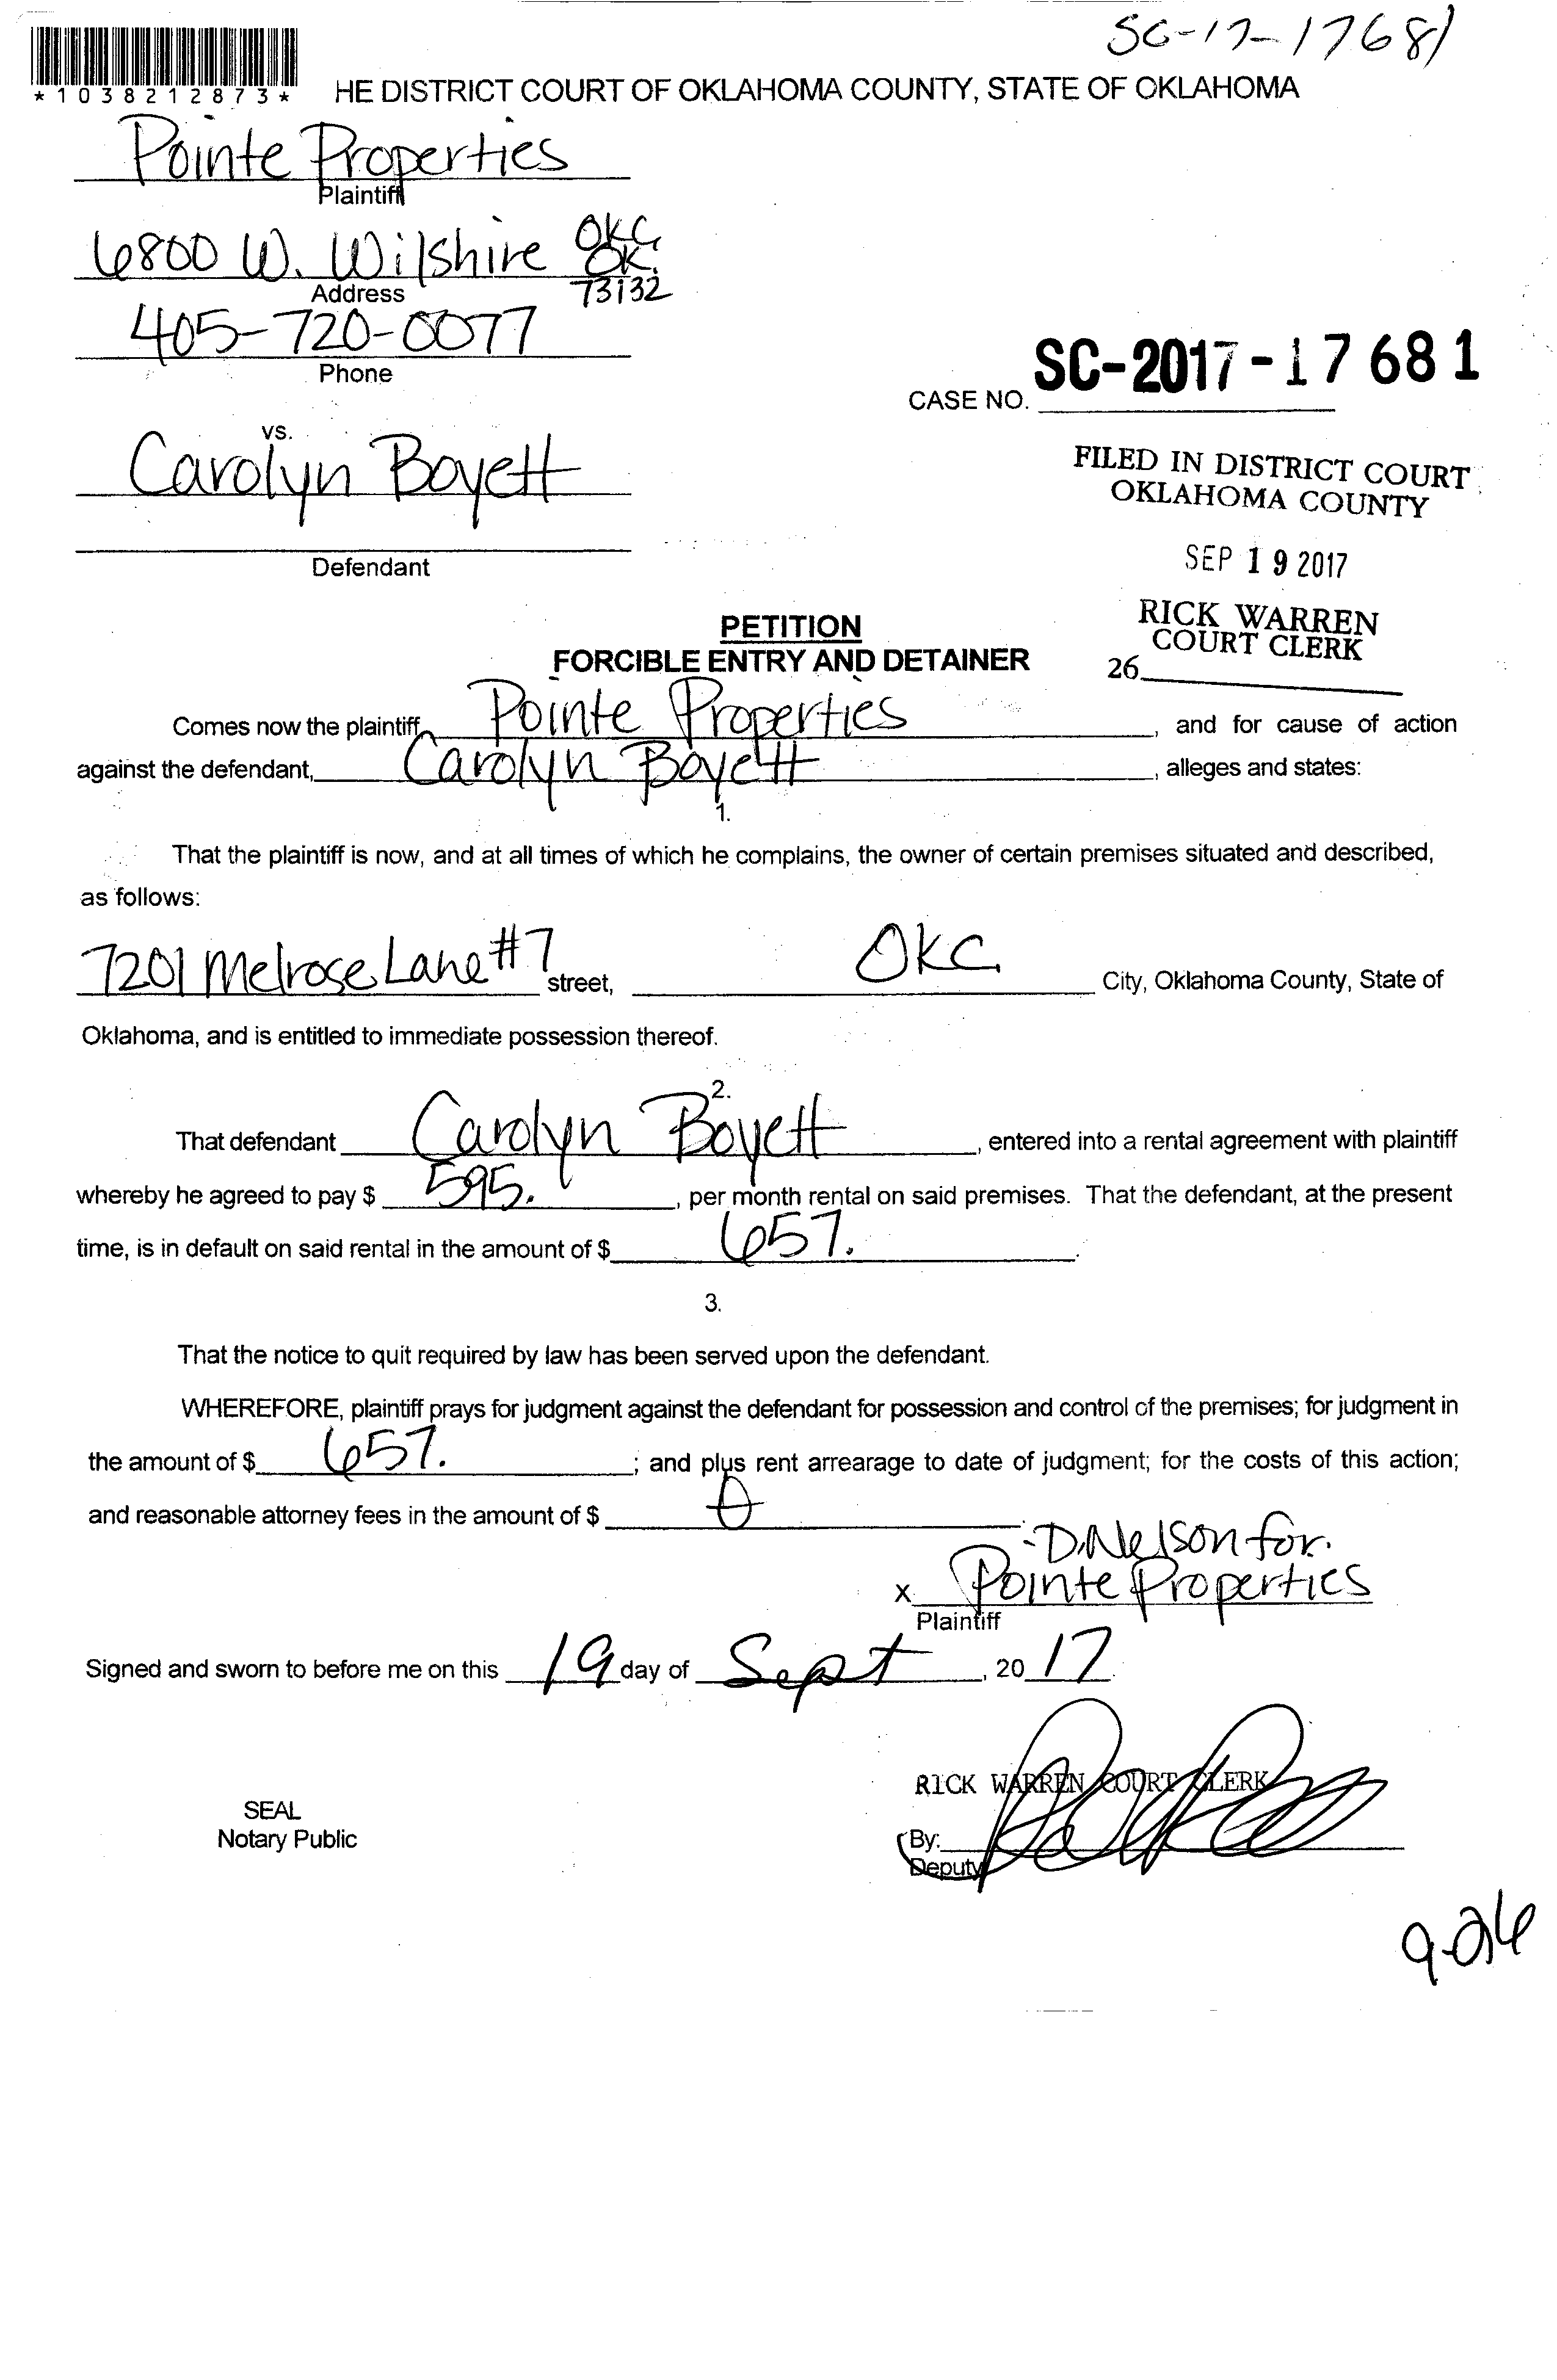 SC-17-17681
*1038212873*
HE DISTRICT COURT OF OKLAHOMA COUNTY, STATE OF OKLAHOMA
Pointe Properties
Plaintiff
6800 W. Wilshire OKC, OK. 73132
Address
405-720-0077
Phone
CASE NO. SC-2017-17681
vs.
Carolyn Boyett
Defendant
FILED IN DISTRICT COURT
OKLAHOMA COUNTY
SEP 19 2017
RICK WARREN
COURT CLERK
26
PETITION
FORCIBLE ENTRY AND DETAINER
Comes now the plaintiff, Pointe Properties, and for cause of action
against the defendant, Carolyn Boyett, alleges and states:
1.
That the plaintiff is now, and at all times of which he complains, the owner of certain premises situated and described,
as follows:
7201 Melrose Lane #7 street, OKC City, Oklahoma County, State of
Oklahoma, and is entitled to immediate possession thereof.
2.
That defendant Carolyn Boyett, entered into a rental agreement with plaintiff
whereby he agreed to pay $ 595., per month rental on said premises. That the defendant, at the present
time, is in default on said rental in the amount of $ 657.
3.
That the notice to quit required by law has been served upon the defendant.
WHEREFORE, plaintiff prays for judgment against the defendant for possession and control of the premises; for judgment in
the amount of $ 657. ; and plus rent arrearage to date of judgment; for the costs of this action;
and reasonable attorney fees in the amount of $ 0
-D. Nelson for.
x Pointe Properties
Plaintiff
Signed and sworn to before me on this 19 day of Sept, 2017
RICK WARREN COURT CLERK
SEAL
Notary Public
By:
Deputy
9-26